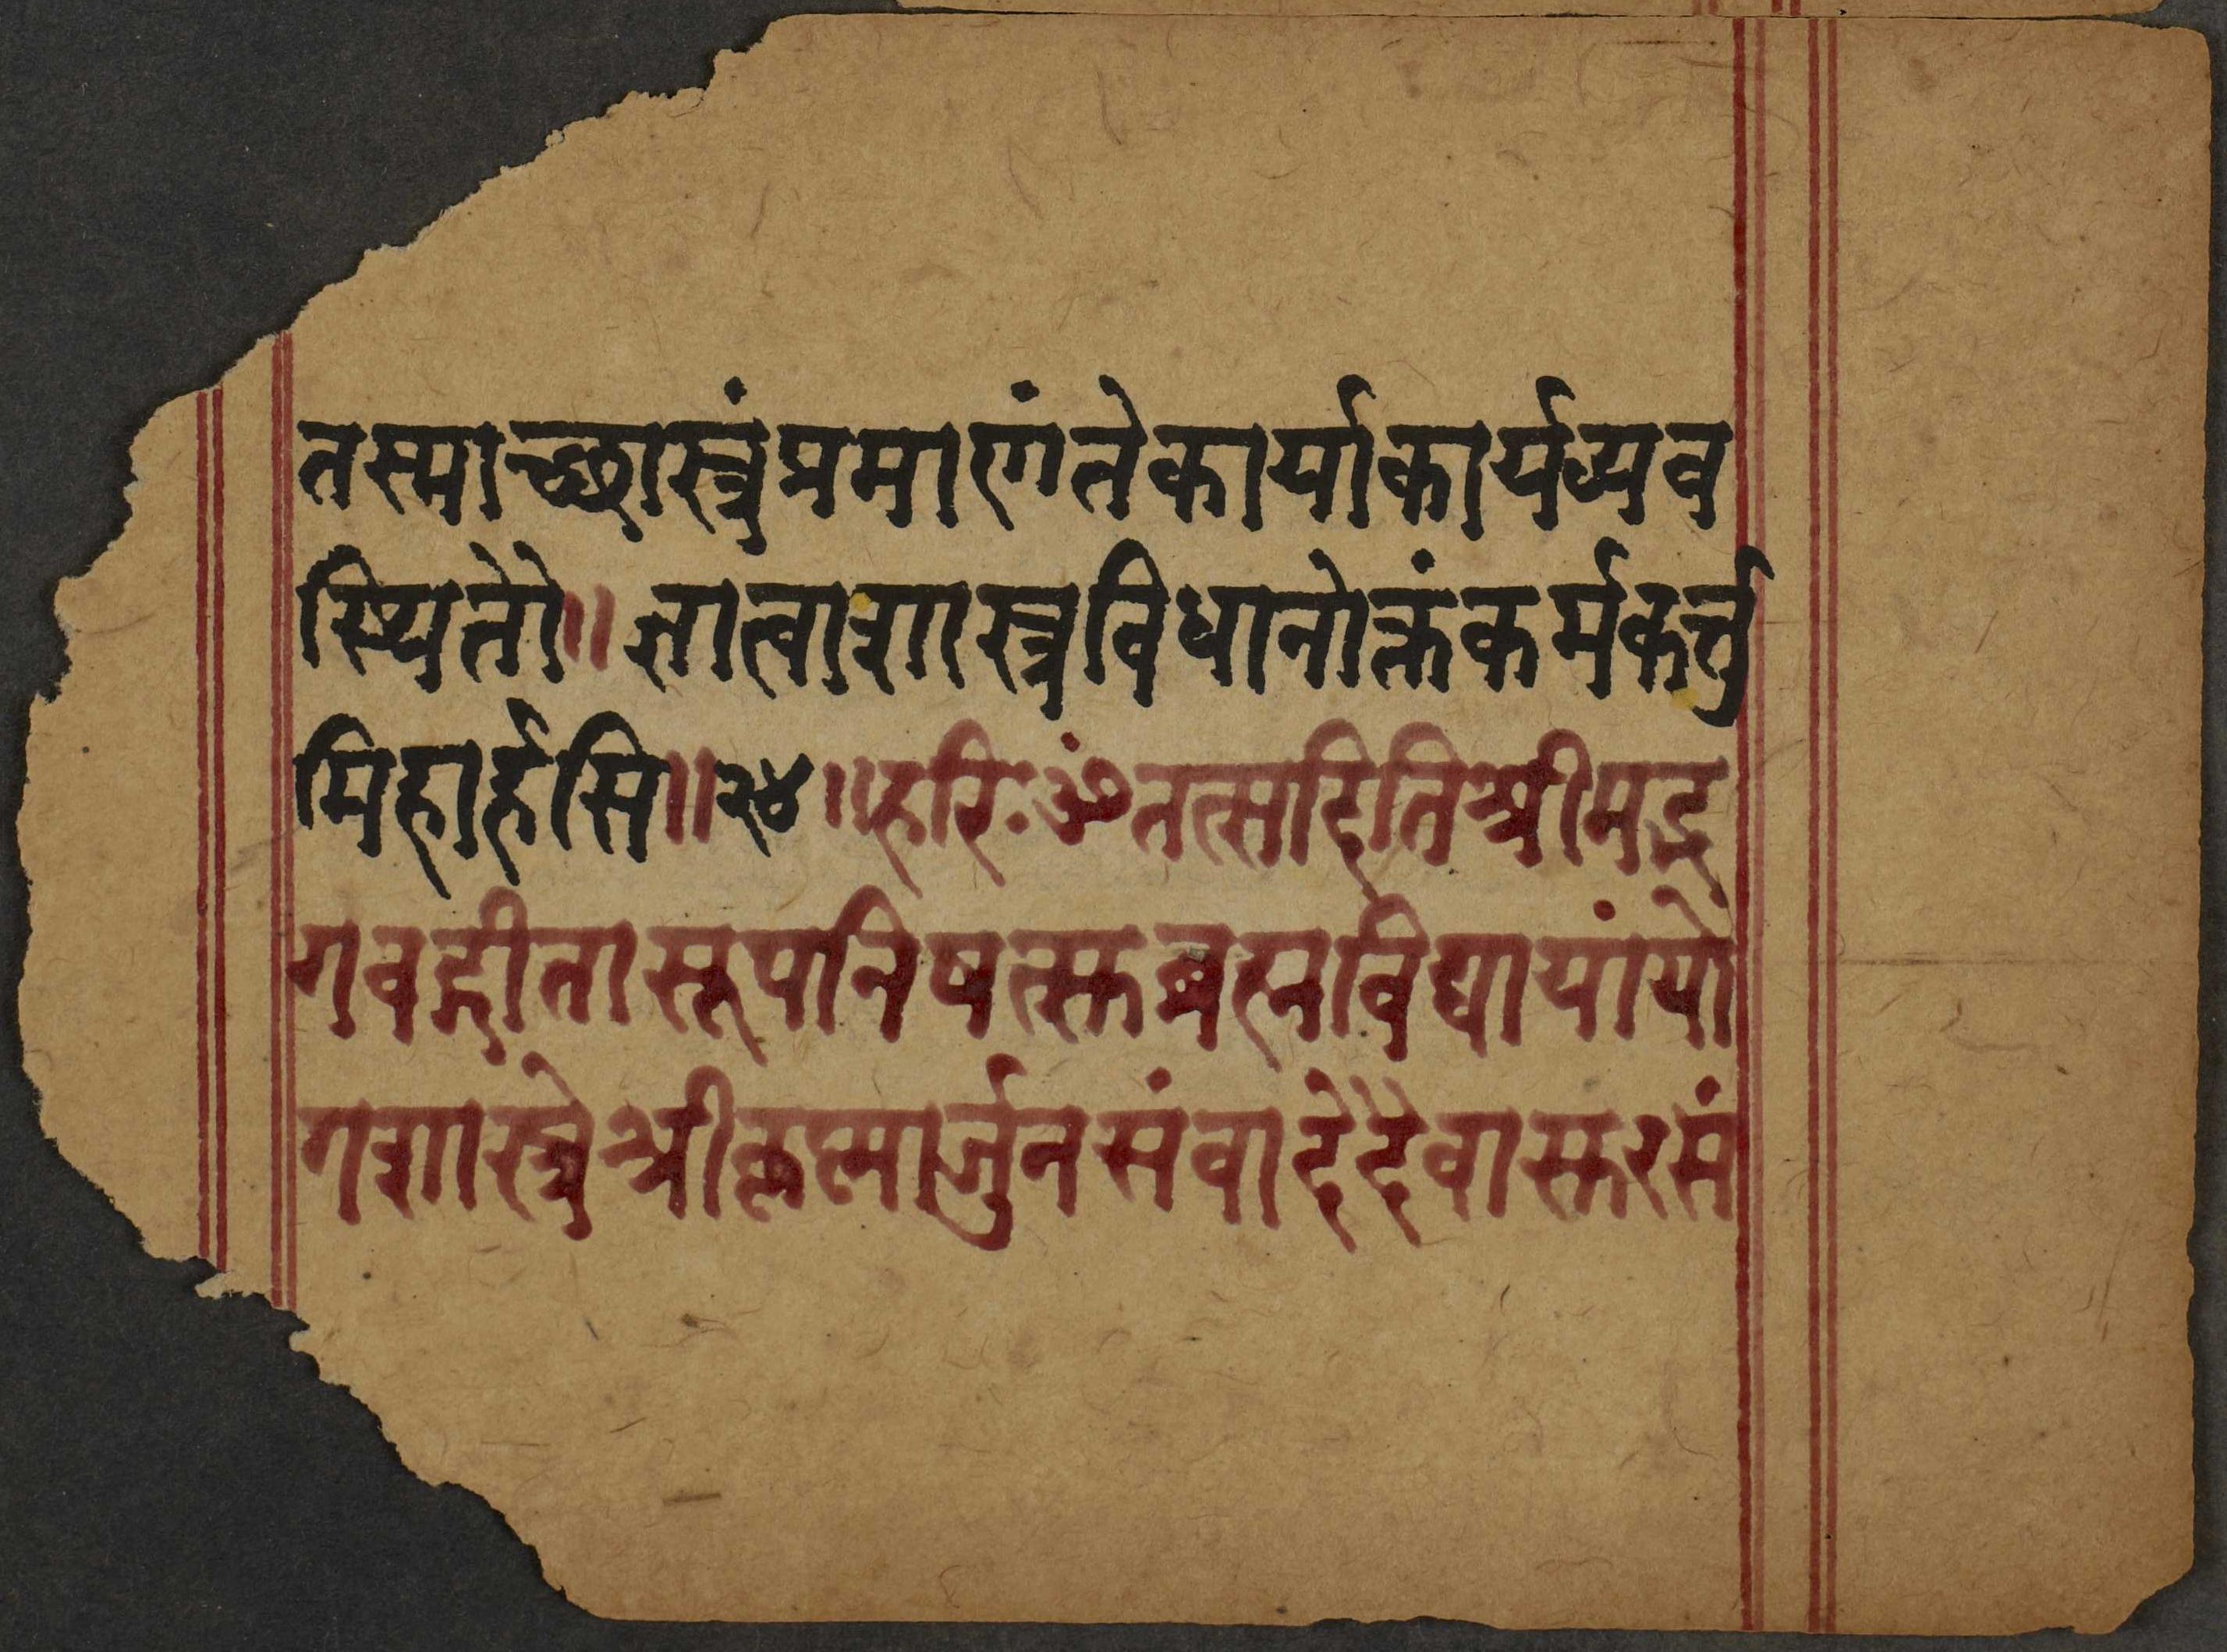 तस्माच्छास्त्रंप्रमाणंतेकार्याकार्यव्यव
स्थितौ॥ज्ञात्वाशास्त्रविधानोक्तंकर्मकर्त्तु
मिहार्हसि॥२४॥हरिःॐतत्सदितिश्रीमद्भ
गवद्गीतासूपनिषत्सुब्रह्मविद्यायांयो
गशास्त्रेश्रीकृष्णार्जुनसंवादेदैवासुरसं